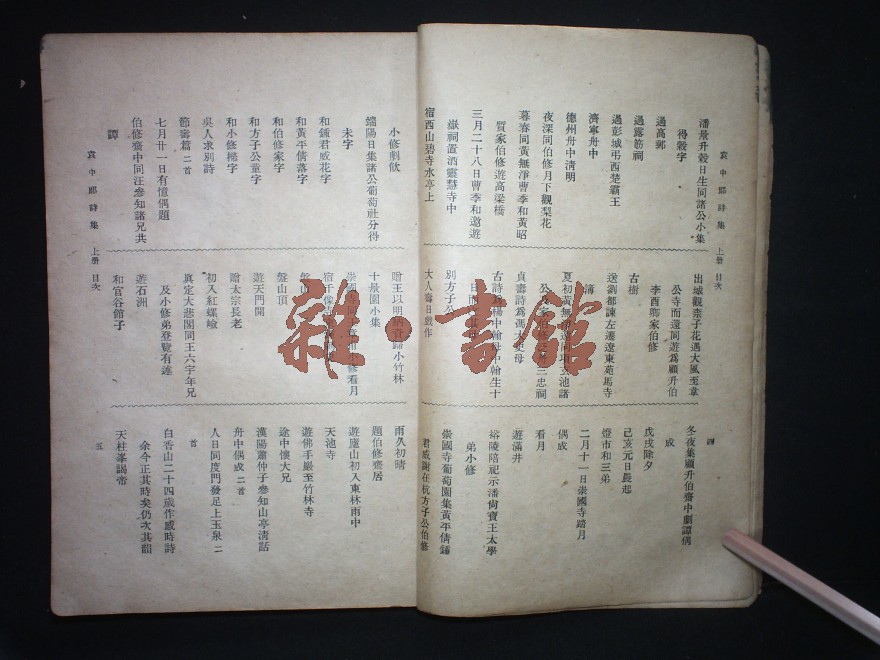 袁中郎詩集 上册 目次
潘景升穀日生同諸公小集
得穀字
過高郵
過露筋祠
過彭城弔西楚霸王
濟寧舟中
德州舟中清明
夜深同伯修月下觀梨花
暮春同黃無淨曹季和黃昭
質家伯修遊高梁橋
三月二十八日曹季和邀遊
嶽祠置酒靈慧寺中
宿西山碧寺水亭上
出城觀柰子花遇大風至韋
公寺而還同遊爲顧升伯
李酉卿家伯修
古樹
送劉都諫左遷遼東苑馬寺
簿
貞壽詩爲馮太史母
別方子公
大人壽日戲作
四
冬夜集顧升伯齋中劇譚偶
成
戊戌除夕
己亥元日晨起
燈市和三弟
二月十一日崇國寺踏月
偶成
看月
遊滿井
裕陵陪祀示潘尚寶王太學
弟小修
崇國寺葡萄園集黃平倩鍾
君威謝在杭方子公伯修
袁中郎詩集 上册 目次
小修劇飲
端陽日集諸公葡萄社分得
未字
和鍾君威花字
和黃平倩落字
和方子公童字
和伯修家字
和小修掃字
吳人求別詩
節壽篇 二首
七月廿一日有憶偶題
伯修齋中同汪參知諸兄共
譚
十景園小集
盤山頂
遊天門開
贈太宗長老
初入紅螺嶮
眞定大悲閣同王六宇年兄
及小修弟登覽有述
遊石洲
和官谷館子
五
雨久初晴
題伯修齋居
遊廬山初入東林雨中
天池寺
遊佛手巖至竹林寺
途中懷大兄
漢陽蕭仲子參知山亭清話
舟中偶成 二首
人日同度門發足上玉泉 二
首
白香山二十四歲作感時詩
余今正其時矣仍次其韻
天柱峯謁帝
雜·書館